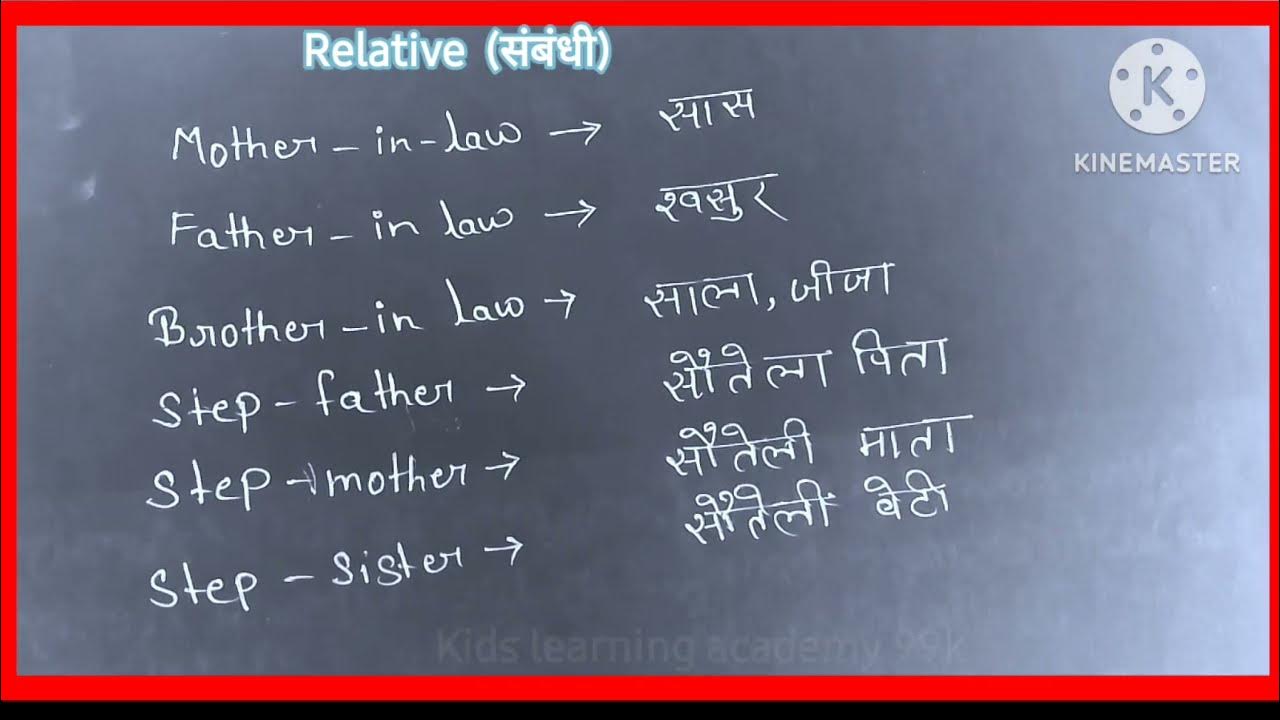 Relative (संबंधी)
K
KINEMASTER
Mother-in-law → सास
Father-in law → श्वसुर
Brother-in law → साला, जीजा
Step-father → सौतेला पिता
Step-mother → सौतेली माता
Step-sister → सौतेली बेटी
Kids learning academy 99k